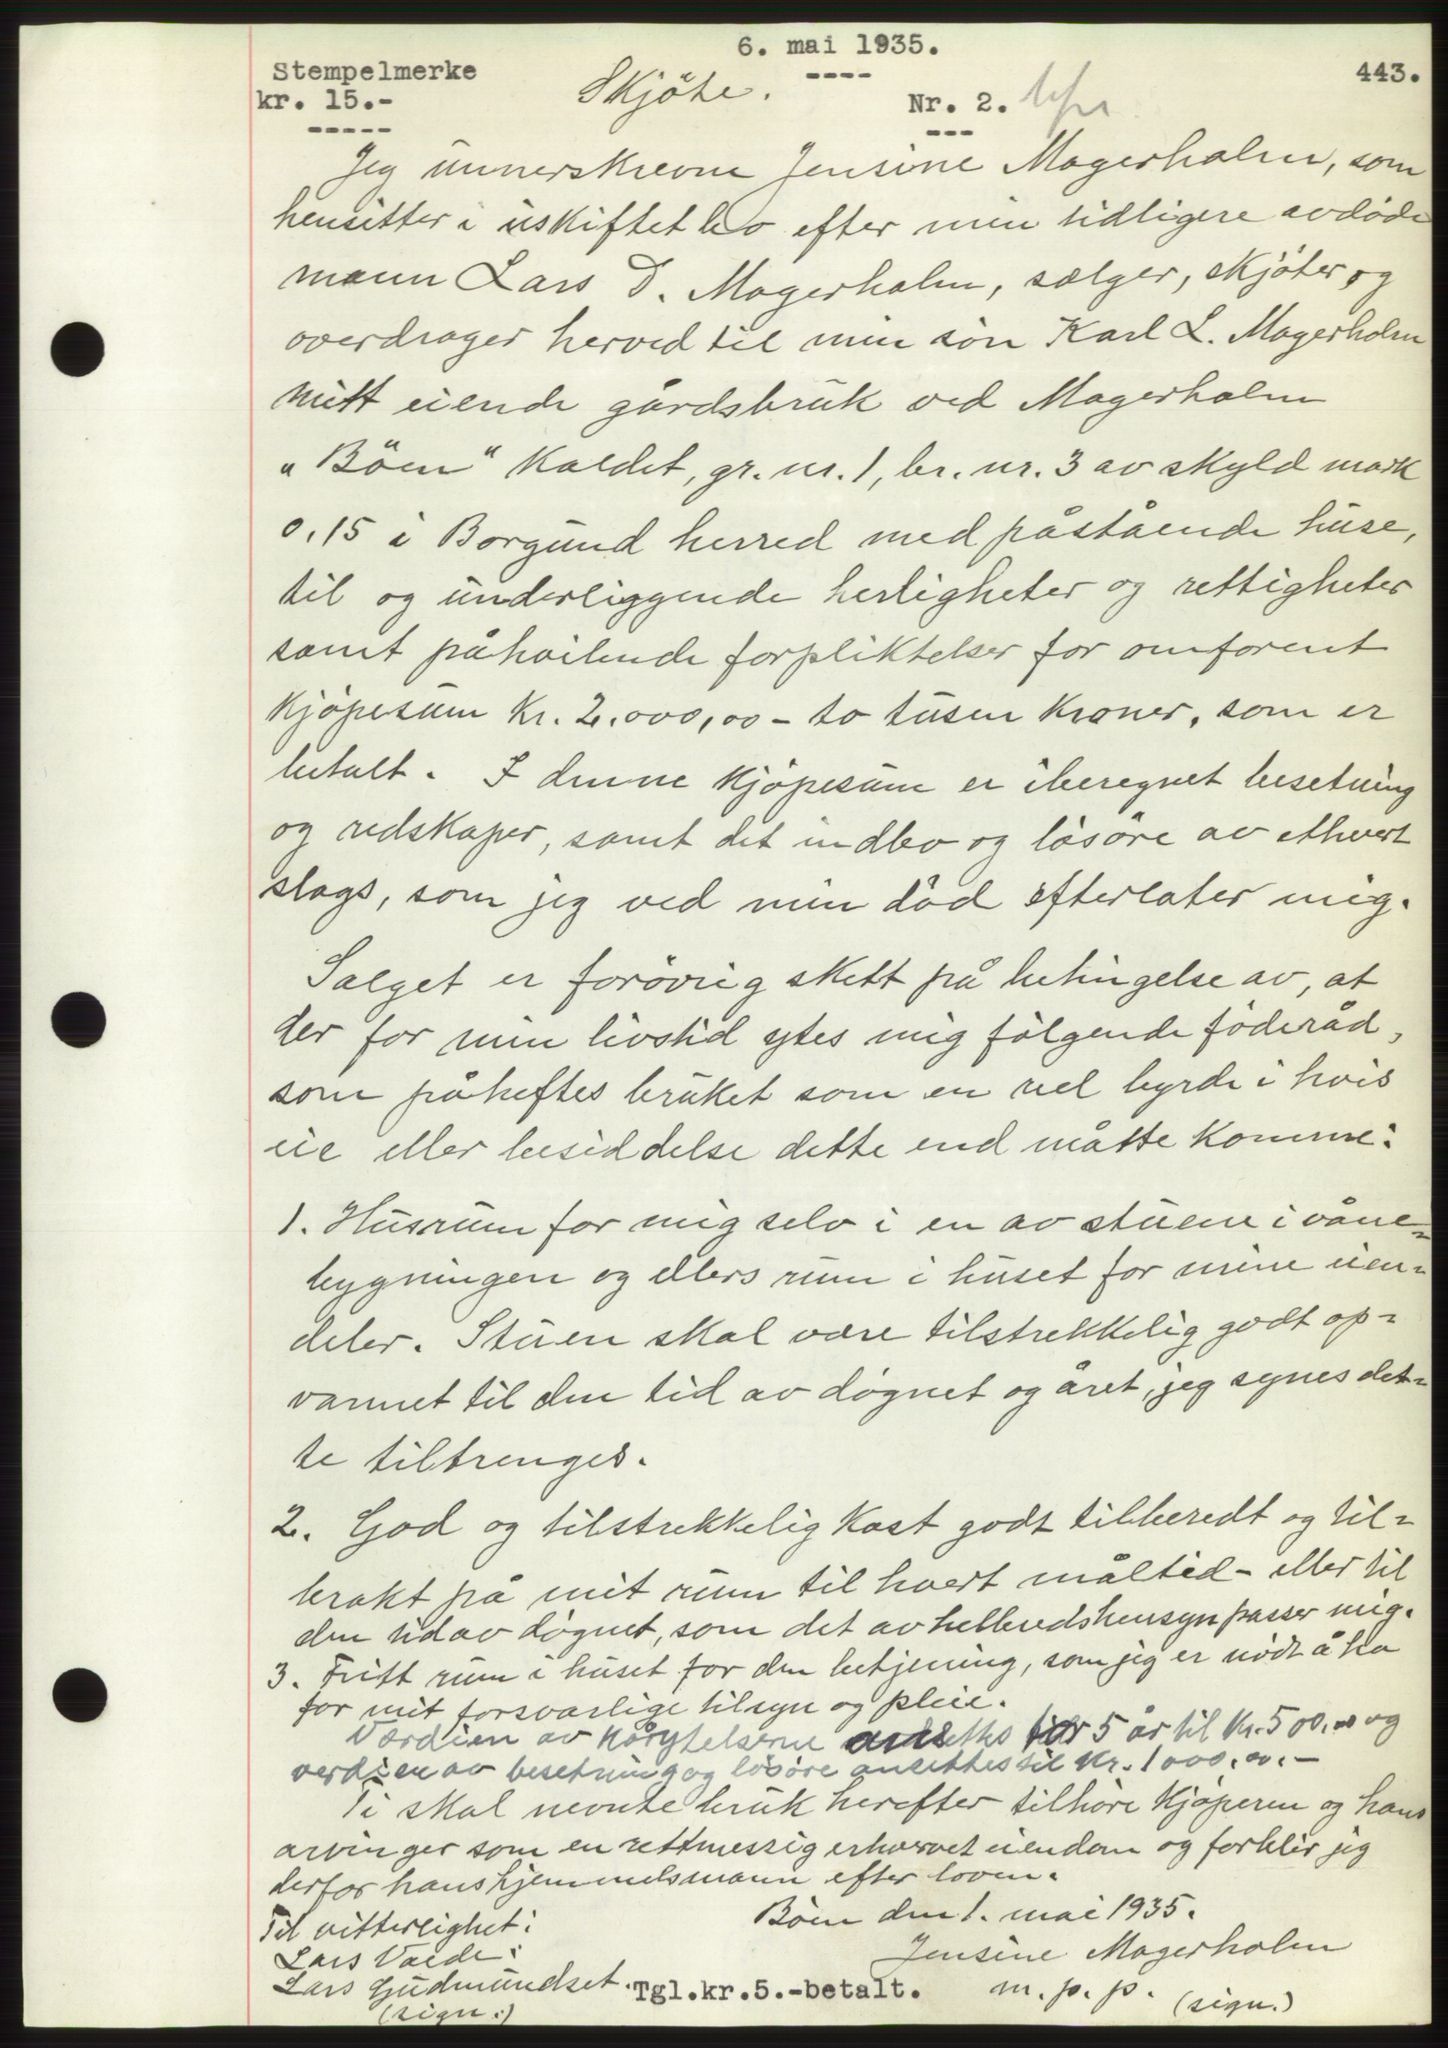 6. mai 1935.
----
443.
Stempelmerke
kr. 15.-
-----
Skjöte.
Nr. 2.
---
Jeg unnerskrevne Jensine Magerholm, som
hensitter i uskiftet bo efter min tidligere avdöde
mann Lars D. Magerholm, sælger, skjöter, og
overdrager herved til min sön Karl L. Magerholm
mitt eiende gårdsbruk ved Magerholm
„Böen" kaldet, gr. nr. 1, br. nr. 3 av skyld mark
0.15 i Borgund herred med påstående huse,
til og underliggende herligheter og rettigheter
samt påhvilende forpliktelser for omforent
kjöpesum kr. 2.000,00 - to tusen kroner, som er
betalt. I denne kjöpesum er iberegnet besetning
og redskaper, samt det indbo og lösöre av ethvert
slags, som jeg ved min död efterlater mig.
Salget er forövrig skett på betingelse av, at
der for min livstid ytes mig fölgende föderåd,
som påheftes bruket som en reel byrde i hvis
eie eller besiddelse dette end måtte komme:
1. Husrum for mig selv i en av stuene i våne-
bygningen og ellers rum i huset for mine eien-
deler. Stuen skal være tilstrekkelig godt op-
varmet til den tid av dögnet og året, jeg synes det-
te tiltrenges.
2. God og tilstrekkelig kost godt tilberedt og til-
brakt på mit rum til hvert måltid - eller til
den tid av dögnet, som det av helbredshensyn passer mig.
3. Fritt rum i huset for den betjening, som jeg er nödt å ha
for mit forsvarlige tilsyn og pleie.
Værdien av kårytelserne ansettes for 5 år til kr. 500.00 og
verdien av besetning og lösöre ansettes til kr. 1000.00.-
Ti skal nevnte bruk herefter tilhöre kjöperen og hans
arvinger som en rettmessig erhvervet eiendom og forblir jeg
derfor hans hjemmelsmann efter loven.
Böen den 1. mai 1935.
Til vitterlighet:
Jensine Magerholm
Lars Valde:
m. p. p. (sign.)
Lars Gudmundset.
Tgl.kr.5.-betalt.
(sign.)